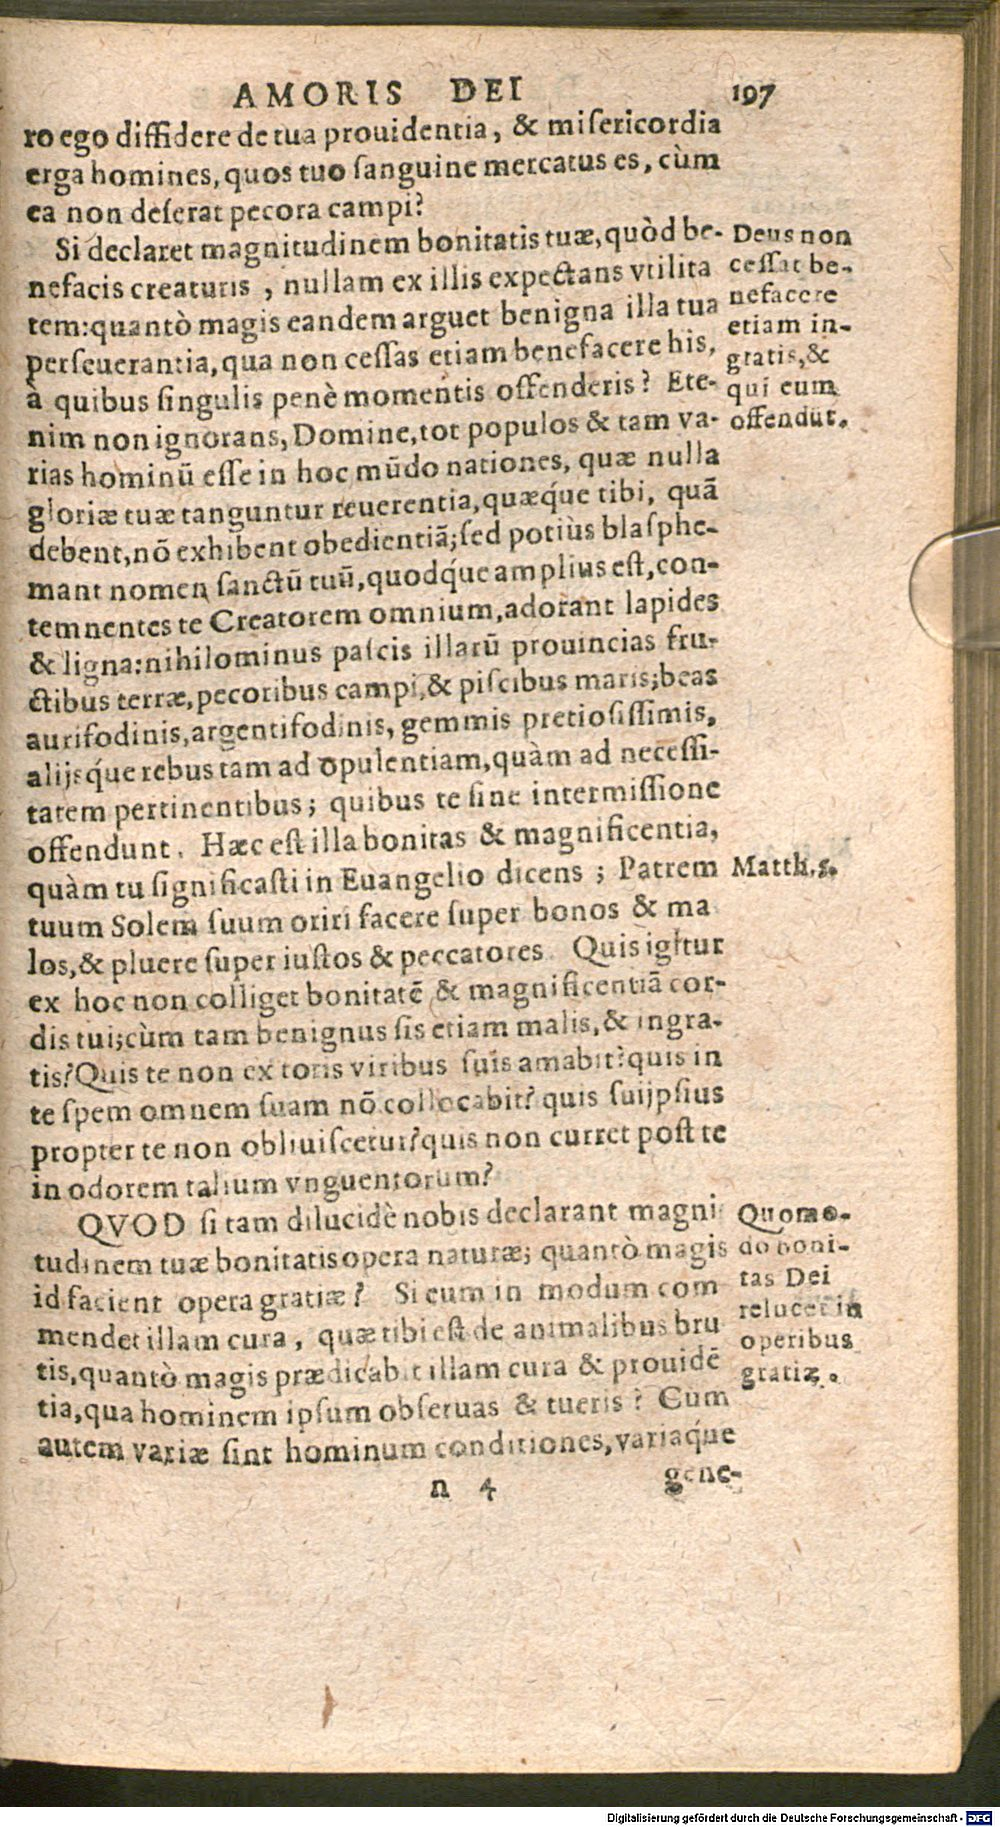 AMORIS DEI 197
ro ego diffidere de tua prouidentia, & misericordia
erga homines, quos tuo sanguine mercatus es, cùm
ea non deserat pecora campi?
Si declaret magnitudinem bonitatis tuæ, quòd be-
nefacis creaturis , nullam ex illis expectans vtilita
tem: quantò magis eandem arguet benigna illa tua
perseuerantia, qua non cessas etiam benefacere his,
à quibus singulis penè momentis offenderis? Ete-
nim non ignorans, Domine, tot populos & tam va-
rias hominū esse in hoc mūdo nationes, quæ nulla
gloriæ tuæ tanguntur reuerentia, quæq́ue tibi, quā
debent, nō exhibent obedientiā; sed potiùs blasphe-
mant nomen sanctū tuū, quodq́ue amplius est, con-
temnentes te Creatorem omnium, adorant lapides
& ligna: nihilominus pascis illarū prouincias fru-
ctibus terræ, pecoribus campi, & piscibus maris; beas
aurifodinis, argentifodinis, gemmis pretiosissimis,
alijsq́ue rebus tam ad opulentiam, quàm ad necessi-
tatem pertinentibus; quibus te sine intermissione
offendunt. Hæc est illa bonitas & magnificentia,
quàm tu significasti in Euangelio dicens ; Patrem
tuum Solem suum oriri facere super bonos & ma
los, & pluere super iustos & peccatores. Quis igitur
ex hoc non colliget bonitatē & magnificentiā cor-
dis tui; cùm tam benignus sis etiam malis, & ingra-
tis? Quis te non ex toris viribus suis amabit? quis in
te spem omnem suam nō collocabit? quis suijpsius
propter te non obliuiscetur? quis non curret post te
in odorem talium vnguentorum?
QVOD si tam dilucidè nobis declarant magni
tudinem tuæ bonitatis opera naturæ; quantò magis
id facient opera gratiæ? Si eum in modum com
mendet illam cura, quæ tibi est de animalibus bru
tis, quantò magis prædicabit illam cura & prouidē
tia, qua hominem ipsum obseruas & tueris? Cum
autem variæ sint hominum conditiones, variaq́ue
n 4 gene-
Deus non
cessat be-
nefacere
etiam in-
gratis, &
qui eum
offendūt.
Matth. 5.
Quomo-
do boni-
tas Dei
relucet in
operibus
gratiæ.
Digitalisierung gefördert durch die Deutsche Forschungsgemeinschaft - DFG